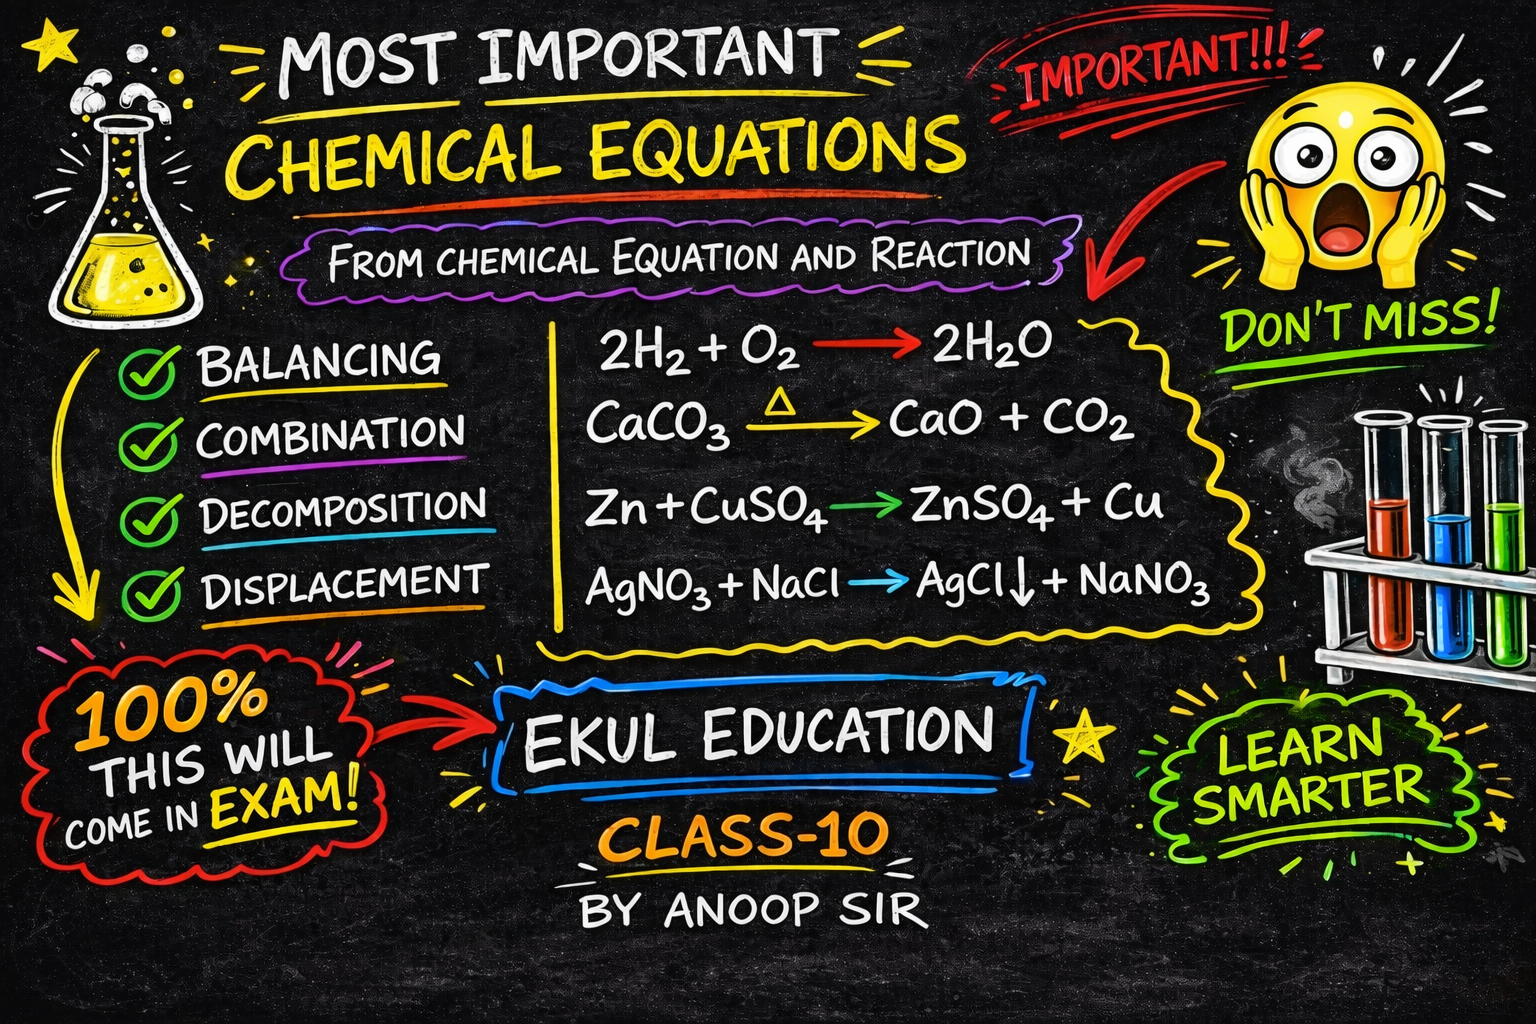 MOST IMPORTANT
CHEMICAL EQUATIONS
IMPORTANT!!!
FROM CHEMICAL EQUATION AND REACTION
DON'T MISS!
BALANCING
COMBINATION
DECOMPOSITION
DISPLACEMENT
2H₂ + O₂ → 2H₂O
CaCO₃ —Δ→ CaO + CO₂
Zn + CuSO₄ → ZnSO₄ + Cu
AgNO₃ + NaCl → AgCl↓ + NaNO₃
100%
THIS WILL
COME IN EXAM!
EKUL EDUCATION
CLASS-10
BY ANOOP SIR
LEARN
SMARTER